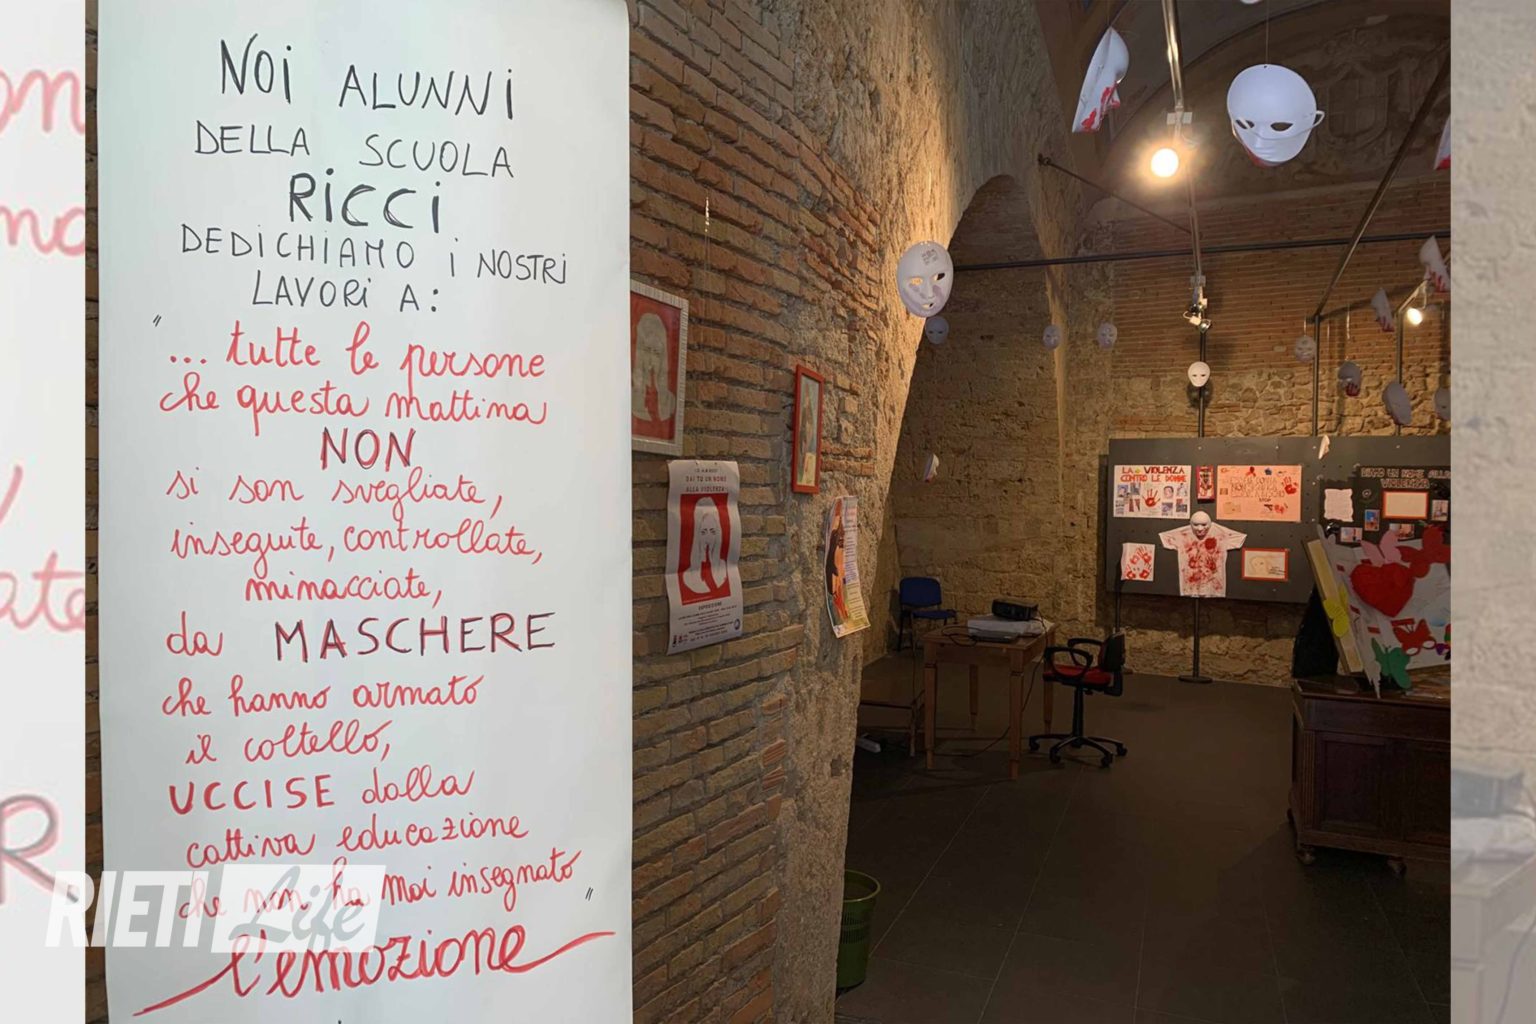 NOI ALUNNI
DELLA SCUOLA
RICCI
DEDICHIAMO I NOSTRI
LAVORI A:
"... tutte le persone
che questa mattina
NON
si son svegliate,
inseguite, controllate,
minacciate,
da MASCHERE
che hanno armato
il coltello,
UCCISE dalla
cattiva educazione
che non ha mai insegnato"
l'emozione
RIETI Life
DAI TU UN NOME
ALLA VIOLENZA
ESPOSIZIONE
LA VIOLENZA
CONTRO LE DONNE
STOP
DIAMO UN NOME ALLA
VIOLENZA